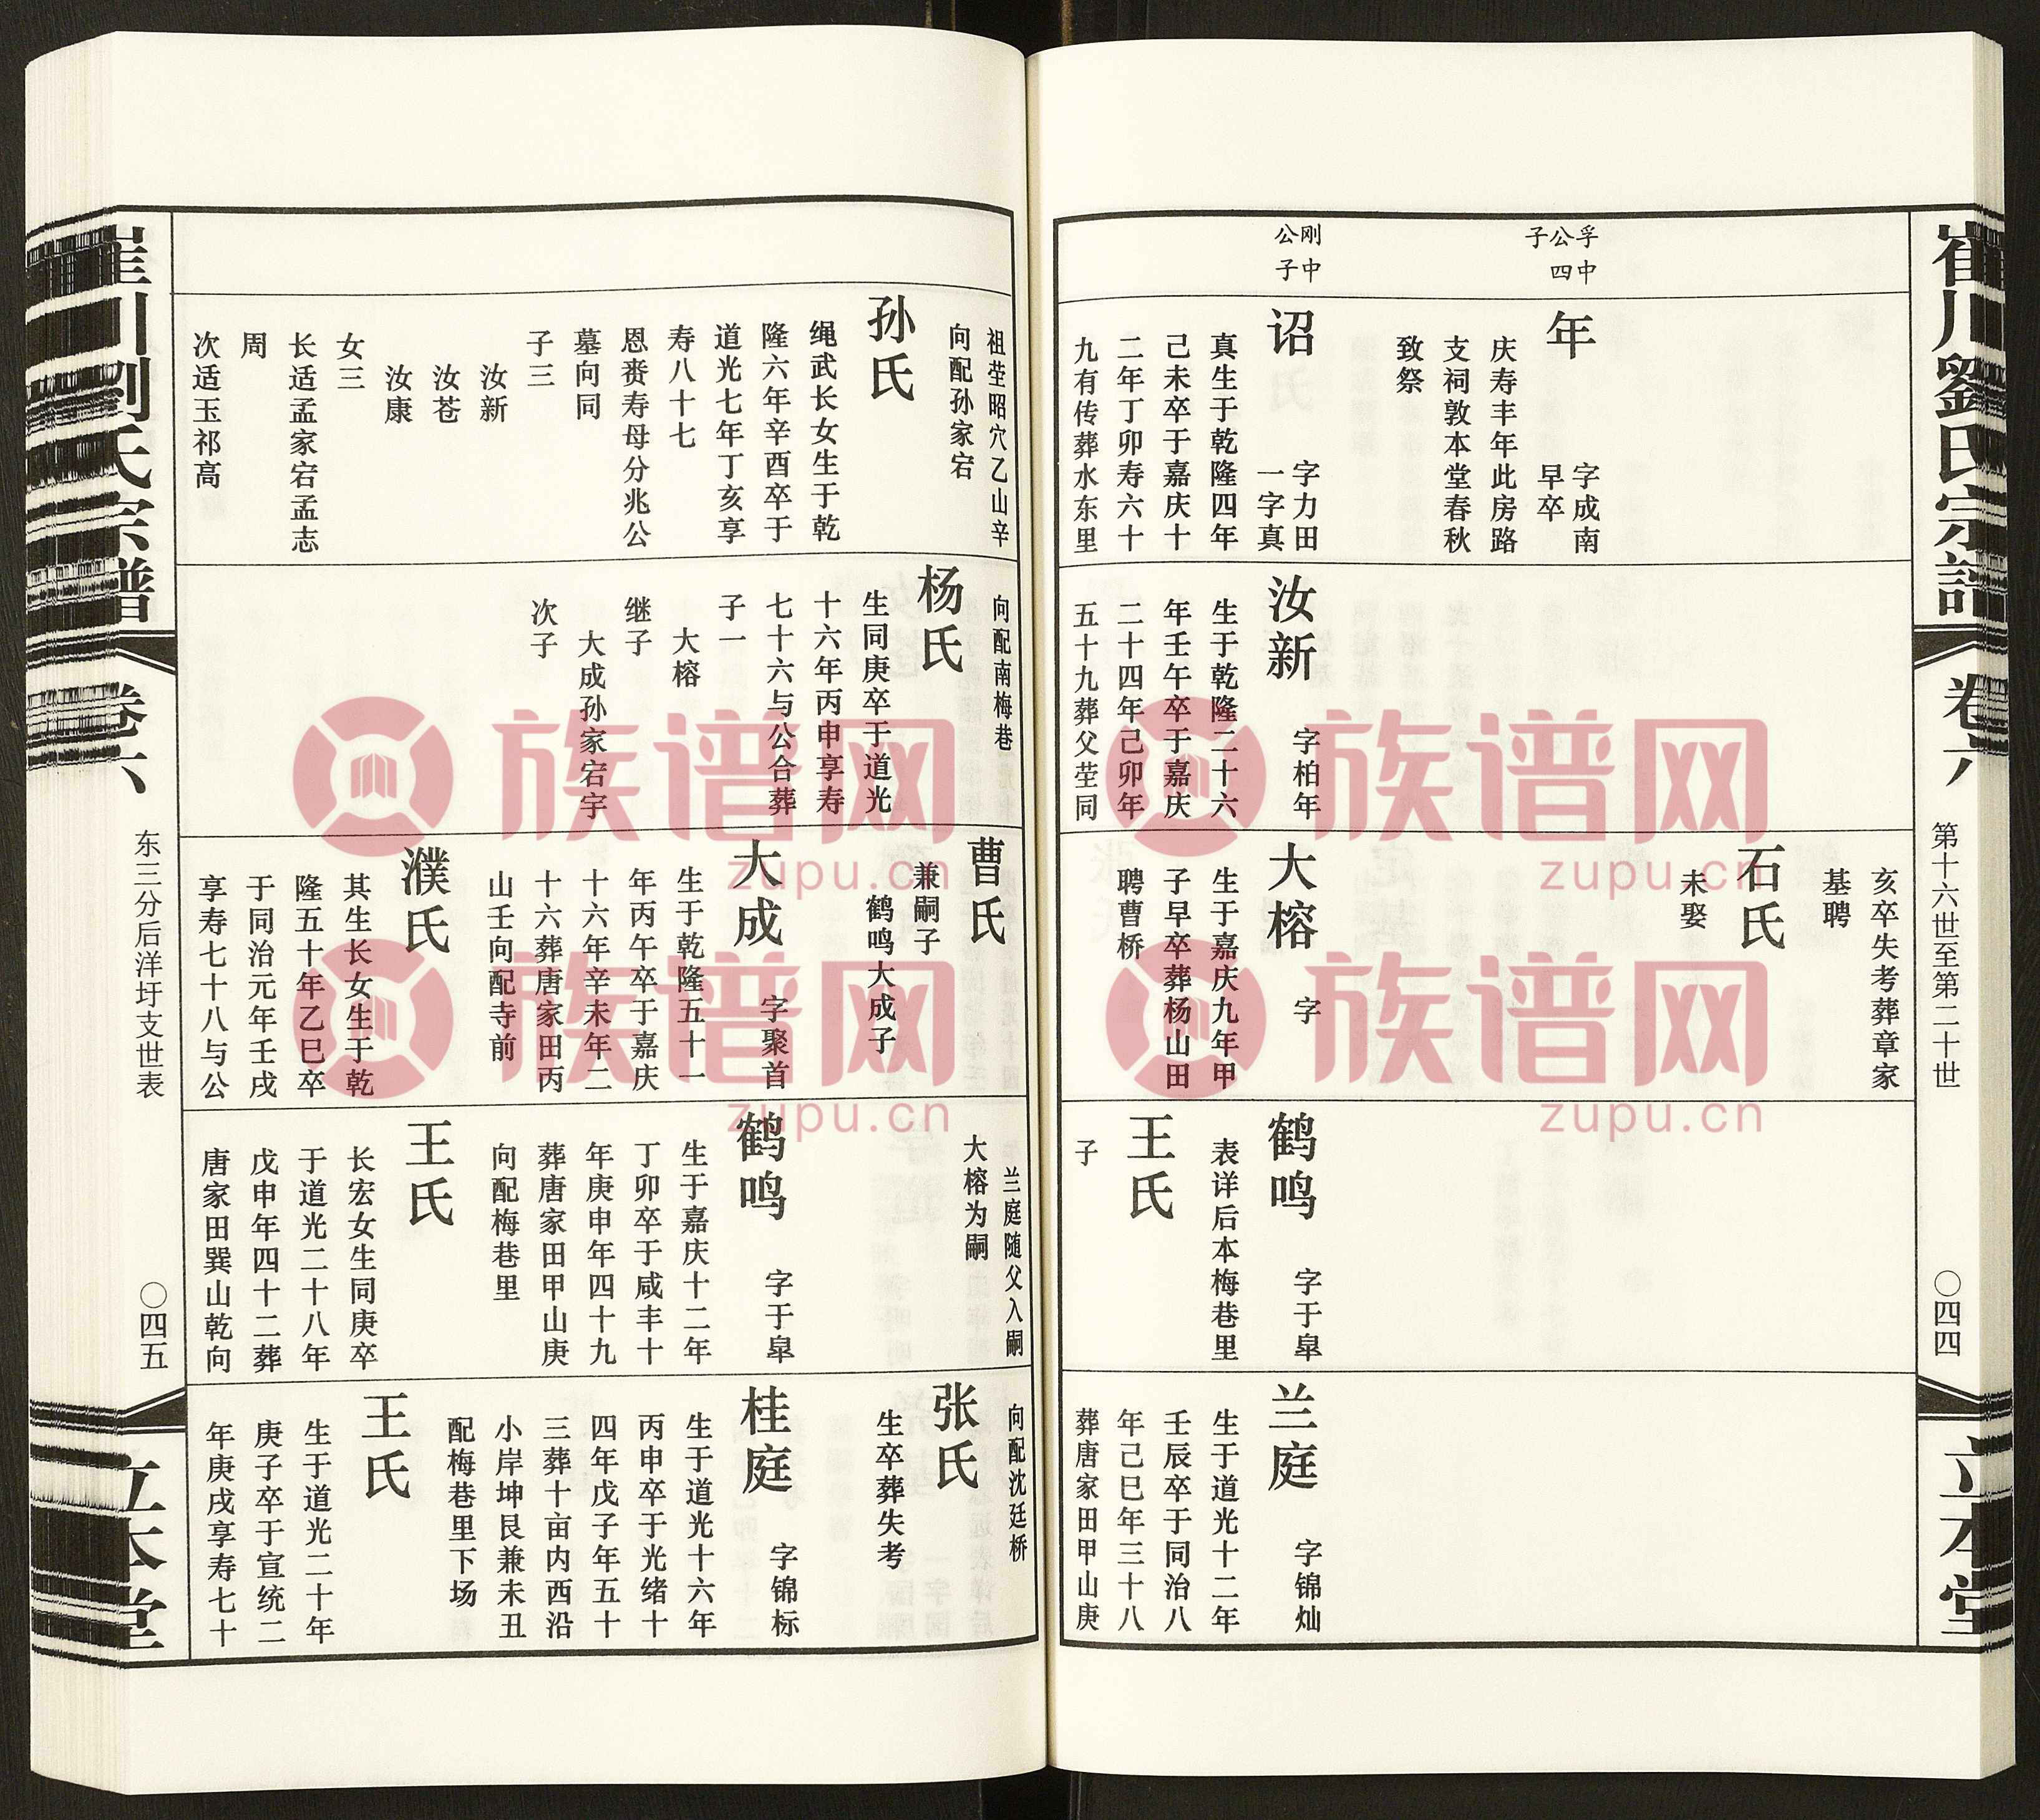 崔川劉氏宗譜
卷六
第十六世至第二十世
〇四四
立本堂
孚中
公四
子
刚中
公子
年
字成南
早卒
庆寿丰年此房路
支祠敦本堂春秋
致祭
诏
字力田
一字真
真生于乾隆四年
己未卒于嘉庆十
二年丁卯寿六十
九有传葬水东里
汝新
字柏年
生于乾隆二十六
年壬午卒于嘉庆
二十四年己卯年
五十九葬父茔同
亥卒失考葬章家
基聘
石氏
未娶
大榕
字
生于嘉庆九年甲
子早卒葬杨山田
聘曹桥
鹤鸣
字于皋
表详后本梅巷里
王氏
子
兰庭
字锦灿
生于道光十二年
壬辰卒于同治八
年己巳年三十八
葬唐家田甲山庚
祖茔昭穴乙山辛
向配孙家宕
孙氏
绳武长女生于乾
隆六年辛酉卒于
道光七年丁亥享
寿八十七
恩赉寿母分兆公
墓向同
子三
汝新
汝苍
汝康
女三
长适孟家宕孟志
周
次适玉祁高
向配南梅巷
杨氏
生同庚卒于道光
十六年丙申享寿
七十六与公合葬
子一
大榕
继子
大成孙家宕宇
次子
曹氏
兼嗣子
鹤鸣大成子
大成
字聚首
生于乾隆五十一
年丙午卒于嘉庆
十六年辛未年二
十六葬唐家田丙
山壬向配寺前
濮氏
其生长女生于乾
隆五十年乙巳卒
于同治元年壬戌
享寿七十八与公
兰庭随父入嗣
大榕为嗣
鹤鸣
字于皋
生于嘉庆十二年
丁卯卒于咸丰十
年庚申年四十九
葬唐家田甲山庚
向配梅巷里
王氏
长宏女生同庚卒
于道光二十八年
戊申年四十二葬
唐家田巽山乾向
向配沈廷桥
张氏
生卒葬失考
桂庭
字锦标
生于道光十六年
丙申卒于光绪十
四年戊子年五十
三葬十亩内西沿
小岸坤艮兼未丑
配梅巷里下场
王氏
生于道光二十年
庚子卒于宣统二
年庚戌享寿七十
崔川劉氏宗譜
卷六
东三分后洋圩支世表
〇四五
立本堂
族谱网
zupu.cn
族谱网
zupu.cn
族谱网
zupu.cn
族谱网
zupu.cn